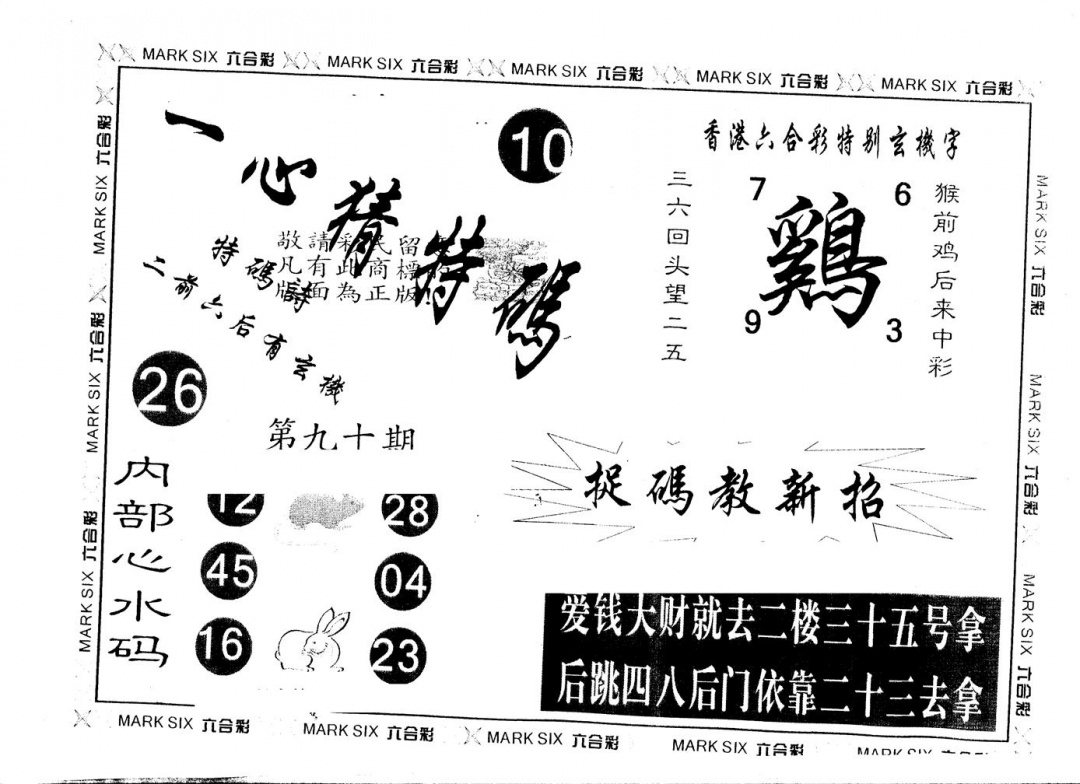 MARK SIX 六合彩 MARK SIX 六合彩 MARK SIX 六合彩 MARK SIX 六合彩 MARK SIX 六合彩
一心猜特碼
10
敬請彩民留
凡有此商標
版面為正版!
特碼詩
二前六后有玄機
26
第九十期
香港六合彩特别玄機字
三六回头望二五
7
6
鷄
9
3
猴前鸡后来中彩
捉碼教新招
内部心水码
12
28
45
04
16
23
爱钱大财就去二楼三十五号拿
后跳四八后门依靠二十三去拿
MARK SIX 六合彩
MARK SIX 六合彩
MARK SIX 六合彩
MARK SIX 六合彩
MARK SIX 六合彩
MARK SIX 六合彩
MARK SIX 六合彩 MARK SIX 六合彩 MARK SIX 六合彩 MARK SIX 六合彩 MARK SIX 六合彩